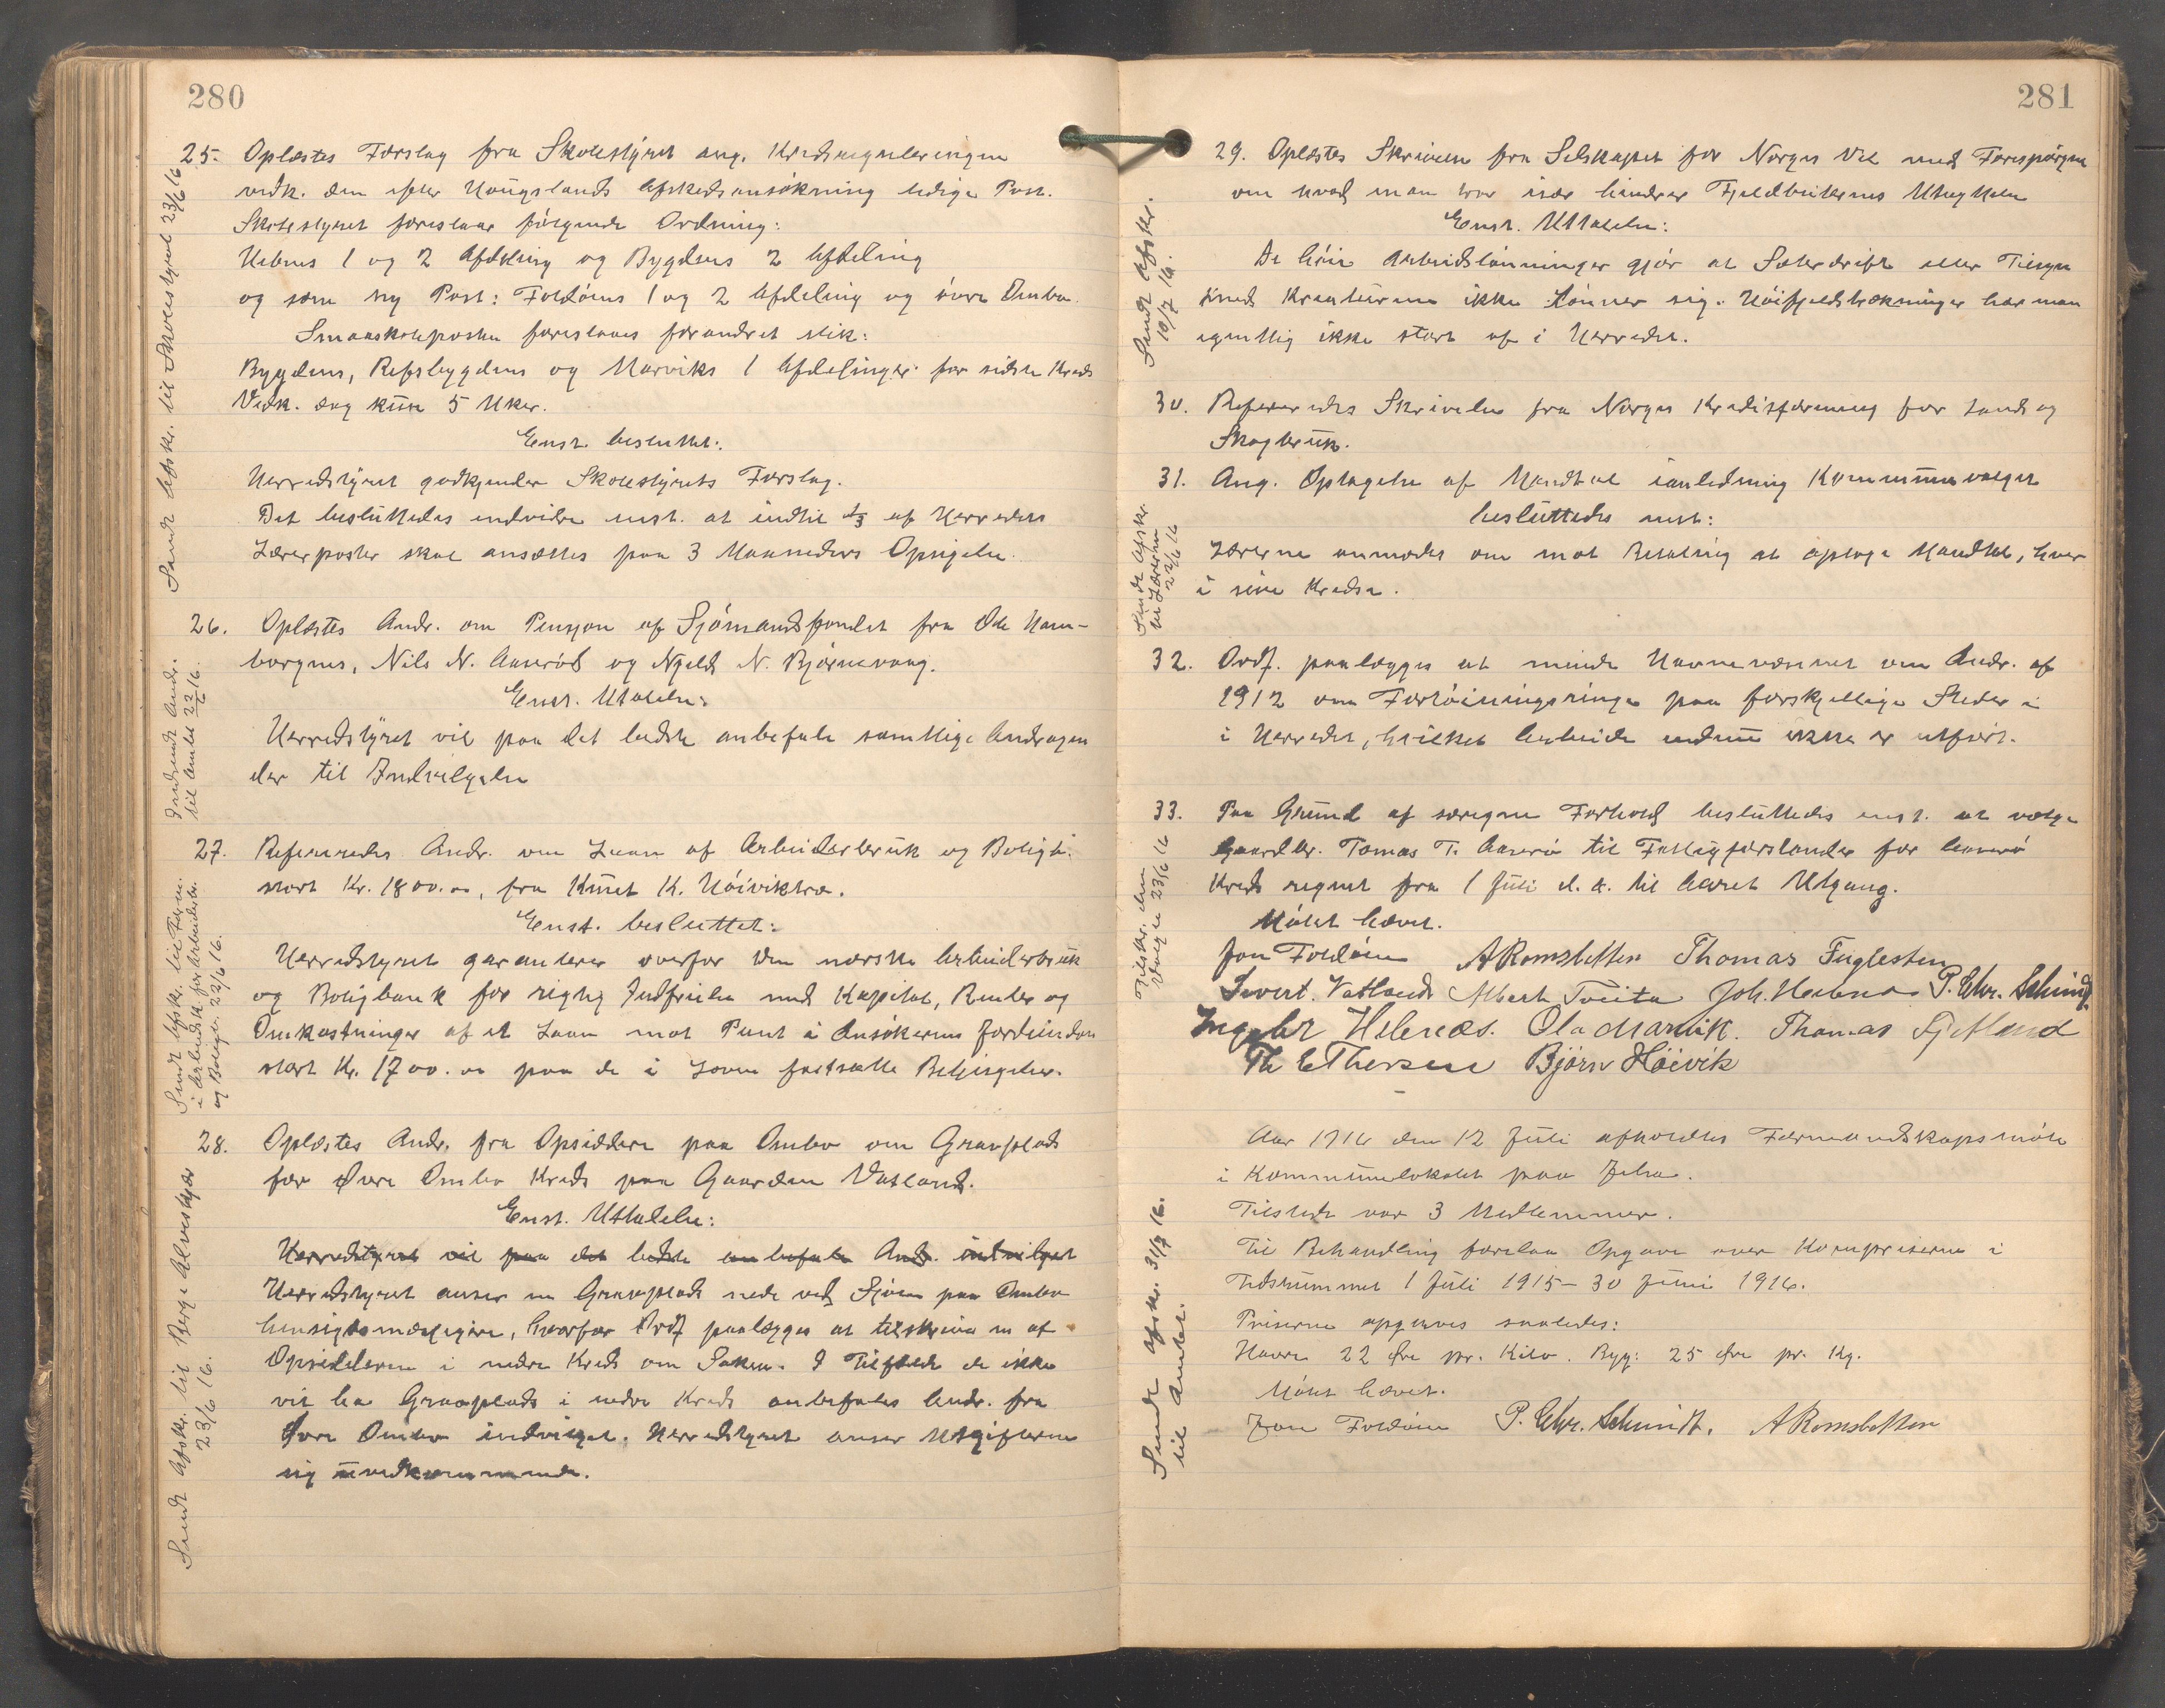 280
25. Oplæstes Forslag fra Skolestyret ang. Kredsreguleringen
vedk. den efter Haugslands Afskedsansøkning ledige Post.
Skolestyret foreslaar følgende Ordning:
Hebnes 1 og 2 Afdeling og Bygdens 2 Afdeling
og som ny Post: Foldøens 1 og 2 Afdeling og øvre Ombo.
Smaaskoleposten foreslaaes forandret slik:
Bygdens, Refsbygdens og Marviks 1 Afdelinger for sidste Kreds
Vedk. dog kun 5 Uker.
Enst. besluttet:
Herredstyret godkjender Skolestyrets Forslag.
Det besluttedes endvidere enst. at indtil 1/3 af Herredets
Lærerposter skal ansættes paa 3 Maaneders Opsigelse.
Sendt Afskr. til Skolestyret 23/6 16
26. Oplæstes Andr. om Pensjon af Sjømandsfondet fra Ole Ham-
borgnes, Nils N. og Njeld N. Bjørnevaag.
Enst. Uttalelse:
Herredstyret vil paa det bedste anbefale samtlige Andragen
der til Indvilgelse
Indsendt Andr.
til Amtet 22/6 16.
27. Refereredes Andr. om Laan af Arbeiderbruk og Boligb.
stort Kr. 1800.00, fra Knut K. Høivikstræ.
Enst. besluttet:
Herredstyret garanterer overfor den norske Arbeiderbruk
og Boligbank for rigtig Indfrielse med Kapital, Renter og
Omkostninger af et Laan mot Pant i Ansøkerens Eiendom
stort Kr. 1700.00 paa de i Loven fastsatte Betingelser.
Sendt Afskr. til Form.
i Arbeidsk. for Arbeiderbr.
og Boligb. 22/6 16.
28. Oplæstes Andr. fra Opsiddere paa Ombo om Gravplads
for Øvre Ombo Kreds paa Gaarden Vatland.
Enst. Uttalelse:
Herredstyret vil paa det bedste anbefale Andr. indvilget
Herredstyret anser en Gravplads nede ved Sjøen paa Ombo
hensigtsmæssigere, hvorfor Ordf. paalægges at tilskrive en af
Opsidderne i nedre Kreds om Saken. I Tilfælde de ikke
vil ha Gravplads i nedre Kreds anbefales Andr. fra
Øvre Ombo indvilget. Herredstyret anser Utgifterne
sig uvedkommende.
Sendt Afskr. til Berge
23/6 16.
281
29. Oplæstes Skrivelse fra Selskapet for Norges Vel med Forespørgsel
om hvad man tror især hindrer Fjeldbeiternes Utnyttelse
Enst. Uttalelse:
De høie Arbeidslønninger gjør at Sæterdrift eller Tilsyn
med Kreaturerne ikke lønner sig. Høifjeldstrækninger har man
egentlig ikke stort af i Herredet.
Sendt Afskr.
10/7 16.
30. Refereredes Skrivelse fra Norges Kreditforening for Land og
Skogbruk.
31. Ang. Optagelse af Mandtal i anledning Kommunevalget
besluttedes enst:
Lærerne anmodes om mot Betaling at optage Mandtal, hver
i sine Kredse.
Sendt Afskr.
til Lærerne
22/6 16
32. Ordf. paalægges at minde Havnevæsenet om Andr. af
1912 om Fortøiningsringe paa forskjellige Steder i
i Herredet, hvilket Arbeide endnu ikke er utført.
33. Paa Grund af særegne Forhold besluttedes enst. at vælge
Gaardbr. Tomas T. til Fattigforstander for
Kreds regnet fra 1 Juli d. A. til Aarets Utgang.
Tilskr. den
Valgte 23/6 16
Møtet hævet.
Jon Foldøen A Romsbotten Thomas Fuglesteen
Sivert. Vatland Albert Tveita Joh. Hebnes P. Chr. Schmidt.
Ingebr Hebnes. Ola Marvik. Thomas Fjetland
Th E Thersen Bjørn Høivik
Aar 1916 den 12 Juli afholdtes Formandskapsmøte
i Kommunelokalet paa Jelsa.
Tilstede var 3 Medlemmer.
Til Behandling forelaa Opgave over Kornpriserne i
Tidsrummet 1 Juli 1915 – 30 Juni 1916.
Priserne opgaves saaledes:
Havre 22 Øre pr. Kilo. Byg: 25 Øre pr. Kg.
Møtet hævet.
Jon Foldøen P. Chr. Schmidt. A Romsbotten
Sendt Afskr. 31/7 16.
til Amtet.